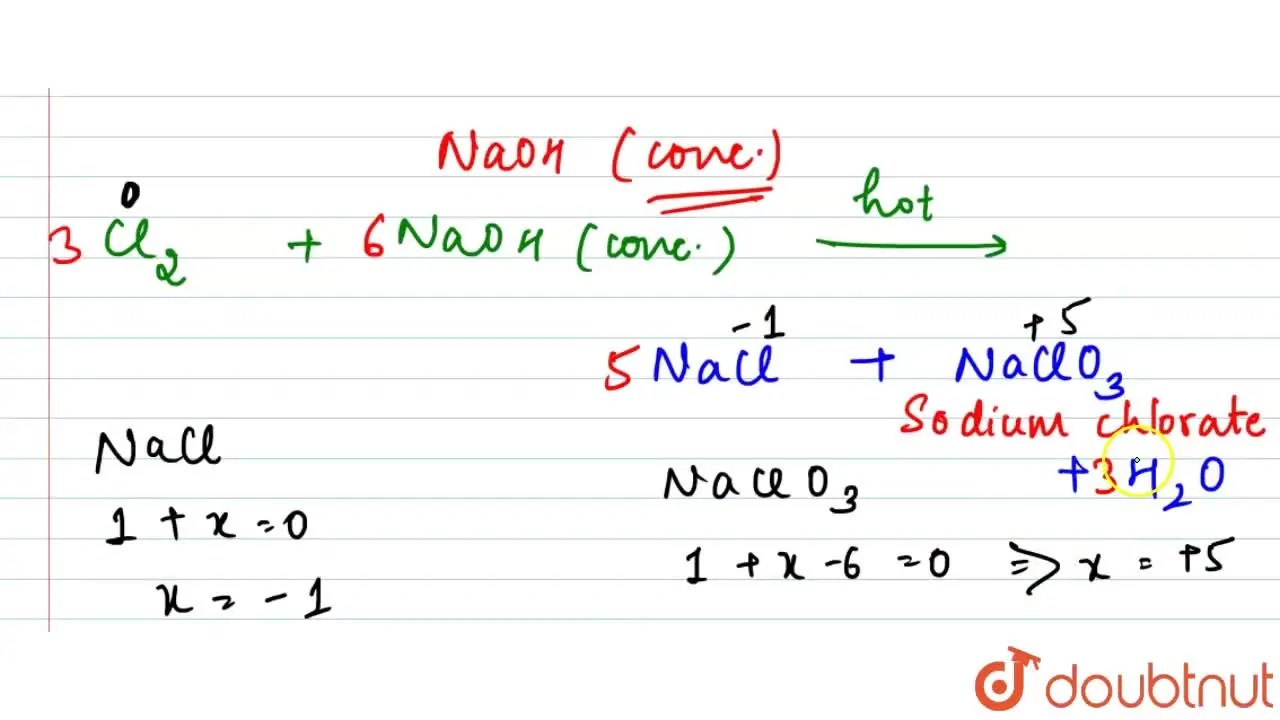 NaOH (conc.)
0
3 Cl2 + 6 NaOH (conc.) hot →
-1 +5
5 NaCl + NaClO3
Sodium chlorate
+ 3H2O
NaCl
1 + x = 0
x = -1
NaClO3
1 + x - 6 = 0 ⇒ x = +5
doubtnut